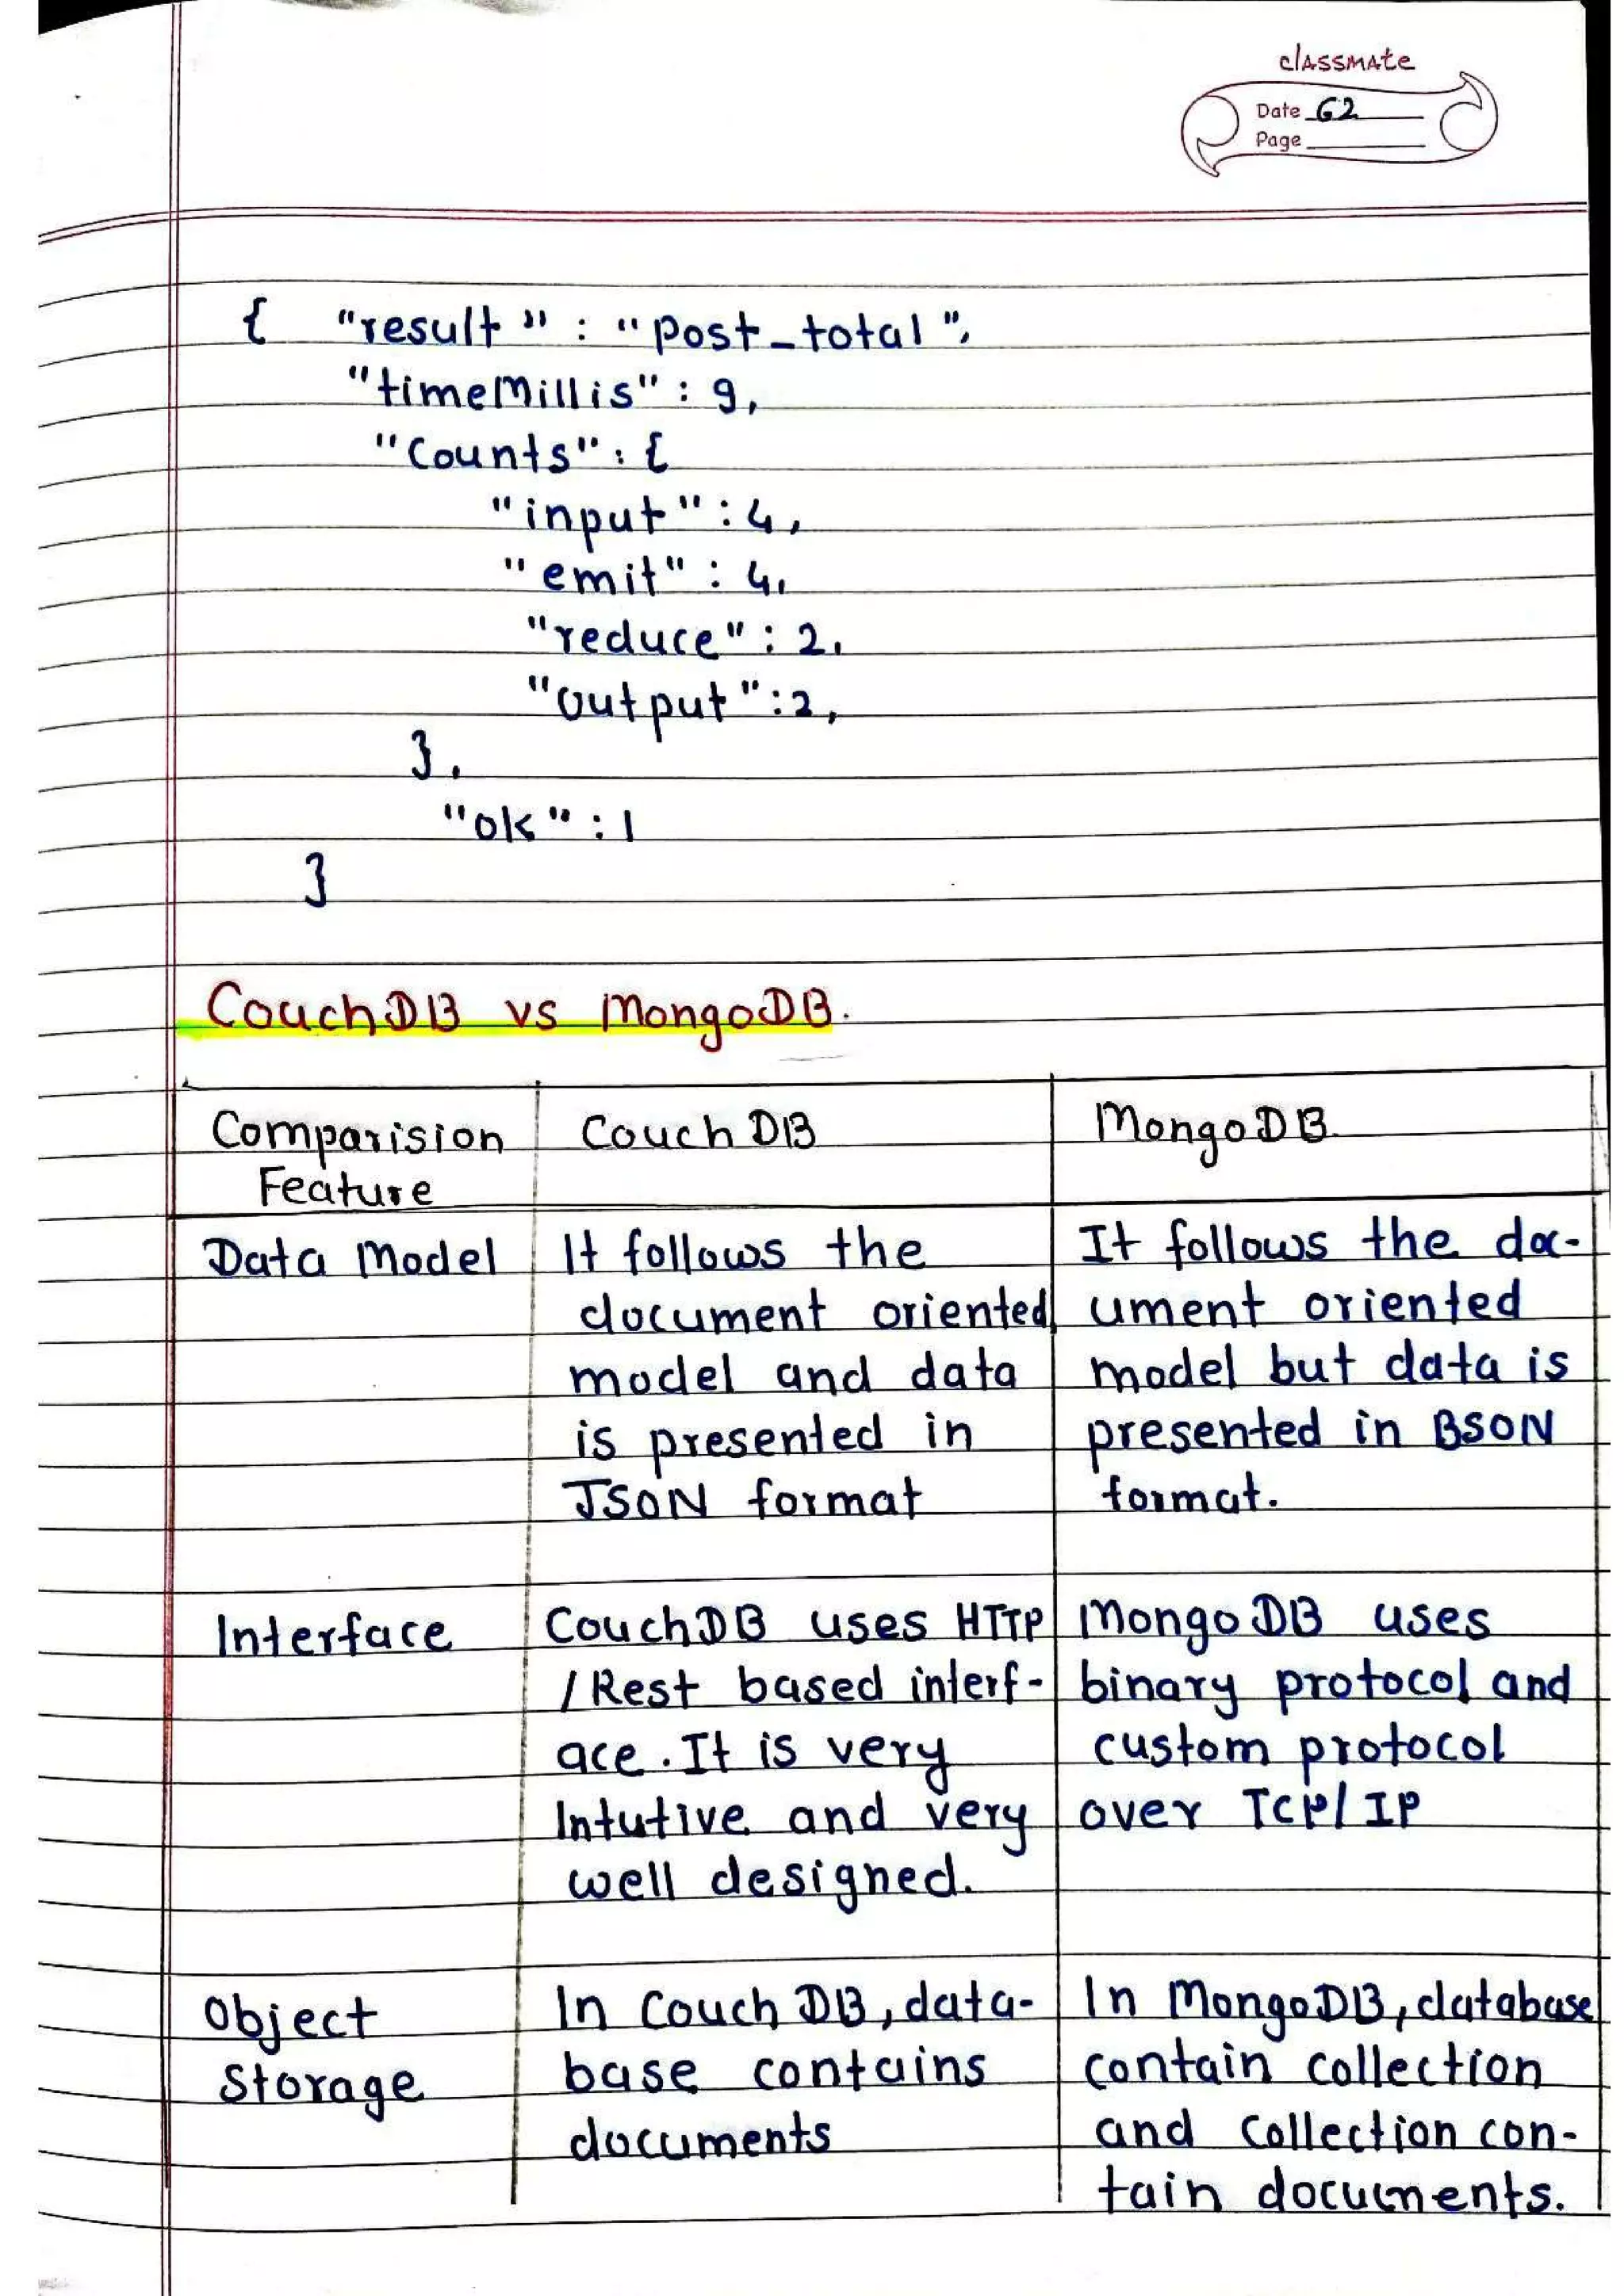 classmate
Date G2
Page
{ "result" : "post_total",
"timeMillis" : 9,
"Counts" : {
"input" : 4,
"emit" : 4,
"reduce" : 2,
"output" : 2,
},
"ok" : 1
}
CouchDB vs MongoDB.
Comparision Feature | CouchDB | MongoDB
Data Model | It follows the | It follows the doc-
document oriented | ument oriented
model and data | model but data is
is presented in | presented in BSON
JSON format | format.
Interface | CouchDB uses HTTP | MongoDB uses
/Rest based interf- | binary protocol and
ace. It is very | custom protocol
Intutive and very | over TCP/IP
well designed.
Object | In CouchDB, data- | In MongoDB, database
Storage | base contains | contain collection
documents | and collection con-
tain documents.